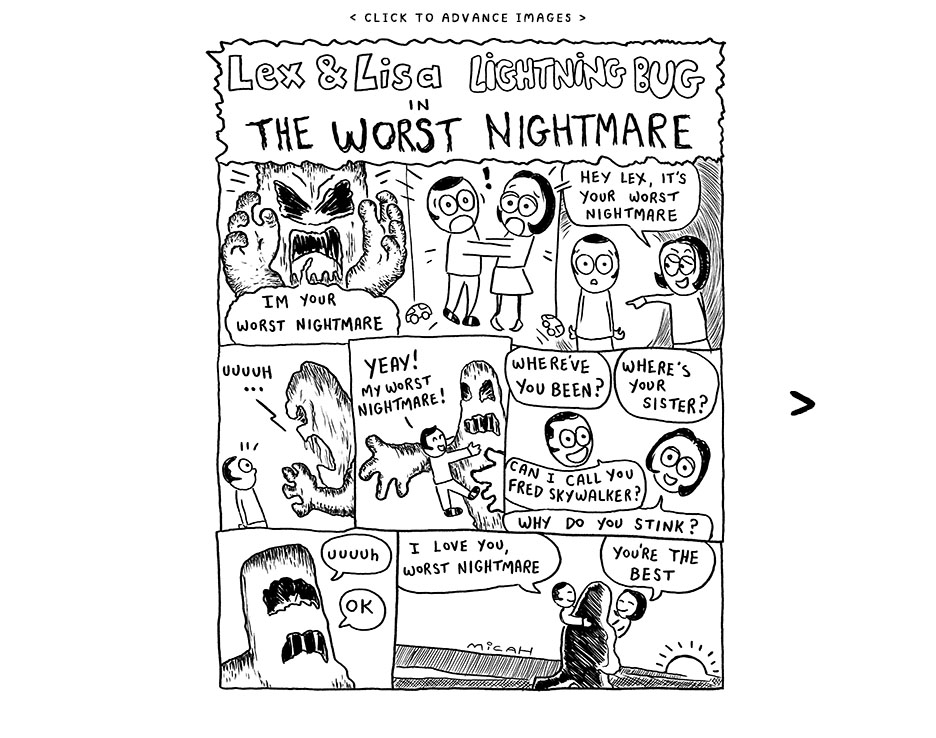 < CLICK TO ADVANCE IMAGES >
Lex & Lisa LIGHTNING BUG
IN
THE WORST NIGHTMARE
IM YOUR
WORST NIGHTMARE
!
HEY LEX, IT'S
YOUR WORST
NIGHTMARE
UUUUH
...
YEAY!
MY WORST
NIGHTMARE!
WHERE'VE
YOU BEEN?
WHERE'S
YOUR
SISTER?
CAN I CALL YOU
FRED SKYWALKER?
WHY DO YOU STINK?
UUUUh
OK
I LOVE YOU,
WORST NIGHTMARE
YOU'RE THE
BEST
MiCAH
>